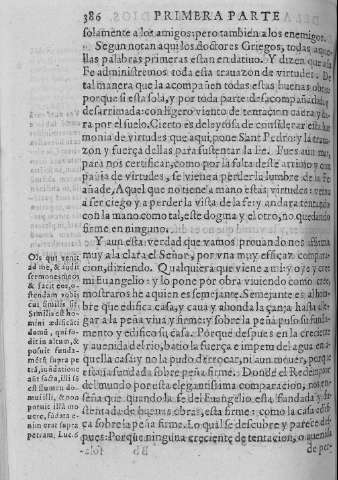 386 PRIMERA PARTE
solamente a los amigos: pero tambien a los enemigos.
Segun notan aqui los doctores Griegos, todas aquellas palabras primeras estan en datiuo. Y dizen que a la
Fe administremos toda esta trauazon de virtudes. De
tal manera que la acompañen todas estas buenas obras
porque si esta sola, y por toda parte desacompañada, y
desarrimada: con ligero viento de tentacion caera y dara
por el suelo. Cierto es de leyos̃a de considerar esta
monia de virtudes que aqui pone Sant Pedro: y la trauazon
y fuerça dellas para sustentar la Fe. Pues aun mas,
para nos certificar, como por la falta deste arrimo y compañia
de virtudes, se viene a perder la lumbre de la Fe
añade, Aquel que no tiene a mano estas virtudes: verna
a ser ciego y a perder la vista de la fe: y andara tentando
con la mano como tal, este dogma y el otro, no quedando
firme en ninguno.
Y aun esta verdad que vamos prouando nos affirma
muy a la clara el Señor, por vna muy efficaz comparacion,
diziendo. Qualquiera que viene a mi: y oye y cree
mi Euangelio: y lo pone por obra viuiendo como cree,
mostraros he a quien es semejante. Semejante es al hombre
que edifica casa, y caua y ahonda la çanja hasta llegar
a la peña viua y firme: y sobre la peña puso su fundamento
y edifico su casa. Porque despues en la creciente
y auenida del rio, batio la fuerça e impetu del agua en aquella
casa: y no la pudo derrocar, ni aun mouer, porque
estaua fundada sobre peña firme. Donde el Redemptor
del mundo por esta elegantissima comparacion, nos enseña
que quando la fe del Euangelio esta fundada y asentada
de buenas obras, esta firme: como la casa edifica
sobre la peña firme. Lo qual se descubre y parece despues:
Porque ninguna creciente de tentacion, o auenida
Ois qui venit
ad me, & audit
sermones meos
& facit eos, ostendam
vobis
cui similis sit.
Similis est homini
ædificanti
domũ, qui fodit
in altum, &
posuit fundamẽtũ
supra petrã,
inundatione
aũt facta, illisũ
est flumen domui
illi, & non
potuit illã mouere,
fũdata enim
erat supra
petram, Luc. 6
Bb
de per-